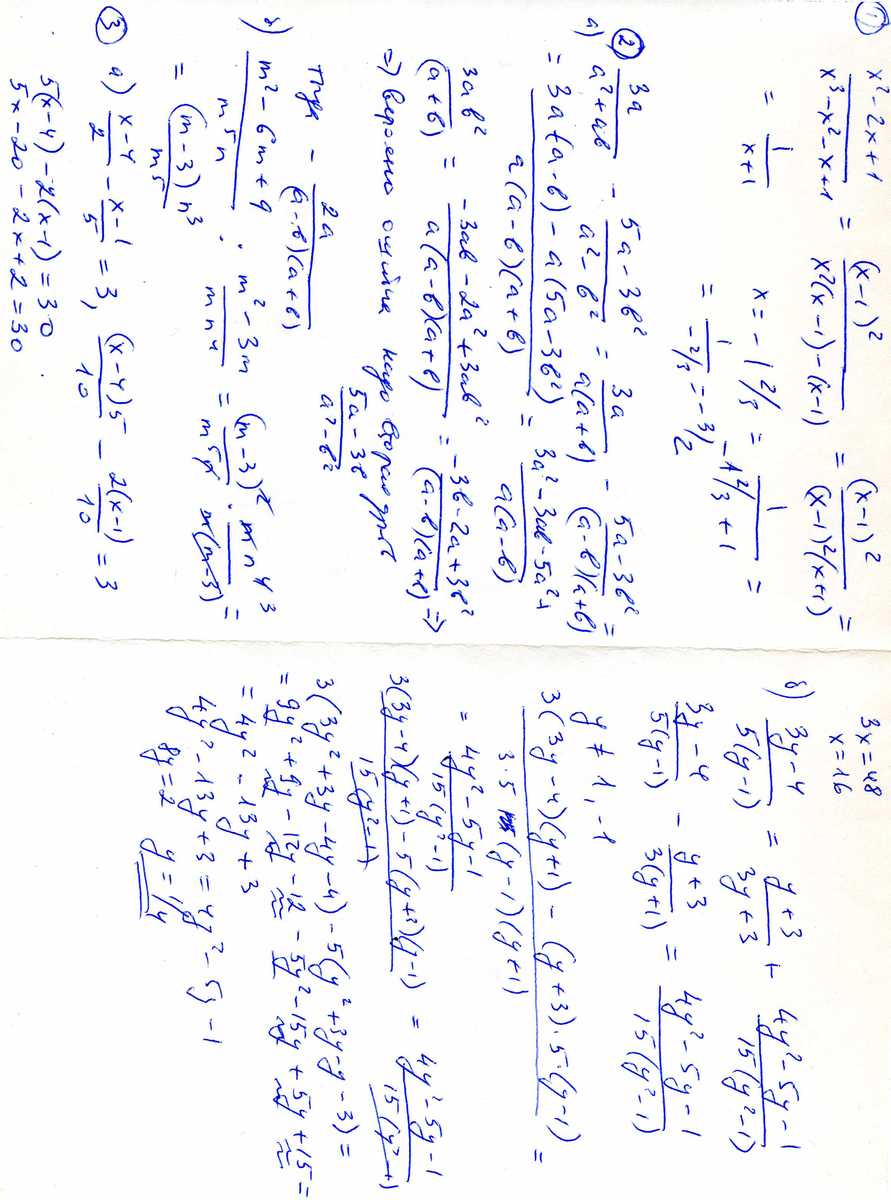 ① (x² - 2x + 1)/(x³ - x² - x + 1) = (x-1)²/(x²(x-1) - (x-1)) = (x-1)²/((x-1)²(x+1)) =
= 1/(x+1) x = -1 2/3 = 1/(-1 2/3 + 1) =
= 1/(-2/3) = -3/2
②
а) 3a/(a² + ab) - (5a - 3b²)/(a² - b²) = 3a/(a(a+b)) - (5a - 3b²)/((a-b)(a+b)) =
= (3a(a-b) - a(5a - 3b²))/(a(a-b)(a+b)) = (3a² - 3ab - 5a² +
3ab²)/(a(a-b)(a+b)) = (-3ab - 2a² + 3ab²)/(a(a-b)(a+b)) = (-3b - 2a + 3b²)/((a-b)(a+b)) ⇒
⇒ вероятно ошибка надо вторая дробь
(5a - 3b)/(a² - b²)
тогда - 2a/((a-b)(a+b))
б) (m² - 6m + 9)/(m⁵n) : (m² - 3m)/(mn⁴) = (m-3)²/(m⁵n) · mn⁴ ³/(m(m-3)) =
= (m-3)n³/m⁵
③ а) (x-4)/2 - (x-1)/5 = 3, (x-4)5/10 - 2(x-1)/10 = 3
5(x-4) - 2(x-1) = 30
5x - 20 - 2x + 2 = 30
3x = 48
x = 16
б) (3y-4)/(5(y-1)) = (y+3)/(3y+3) + (4y² - 5y - 1)/(15(y² - 1))
(3y-4)/(5(y-1)) - (y+3)/(3(y+1)) = (4y² - 5y - 1)/(15(y² - 1))
y ≠ 1, -1
(3(3y-4)(y+1) - (y+3)·5·(y-1))/(3·5(y-1)(y+1)) =
= (4y² - 5y - 1)/(15(y² - 1))
(3(3y-4)(y+1) - 5(y+3)(y-1))/(15(y² - 1)) = (4y² - 5y - 1)/(15(y² - 1)
3(3y² + 3y - 4y - 4) - 5(y² + 3y - y - 3) =
= 9y² + 9y - 12y - 12 - 5y² - 15y + 5y + 15 =
= 4y² - 13y + 3
4y² - 13y + 3 = 4y² - 5y - 1
8y = 2 y = 1/4